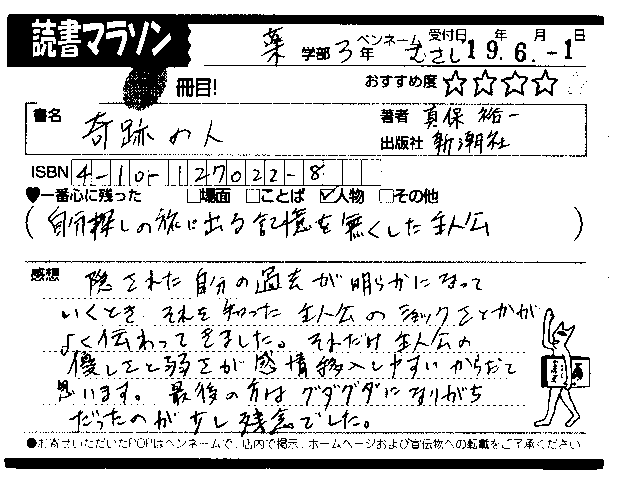 読書マラソン
薬 学部 3年 ペンネーム むさし 受付日 19年 6.月-1日
冊目!
おすすめ度 ☆☆☆☆☆
書名 奇跡の人
著者 真保裕一
出版社 新潮社
ISBN 4-10-127022-8
♥一番心に残った □場面 □ことば ☑人物 □その他
(自分探しの旅に出る記憶を無くした主人公)
感想 隠された自分の過去が明らかになって
いくとき、それを知った主人公のショックさとかが
よく伝わってきました。それだけ主人公の
優しさと弱さが感情移入しやすいからだと
思います。最後の方はグダグダになりがち
だったのが少し残念でした。
●お寄せいただいたPOPはペンネームで、店内で掲示、ホームページおよび宣伝物への転載をご了承ください